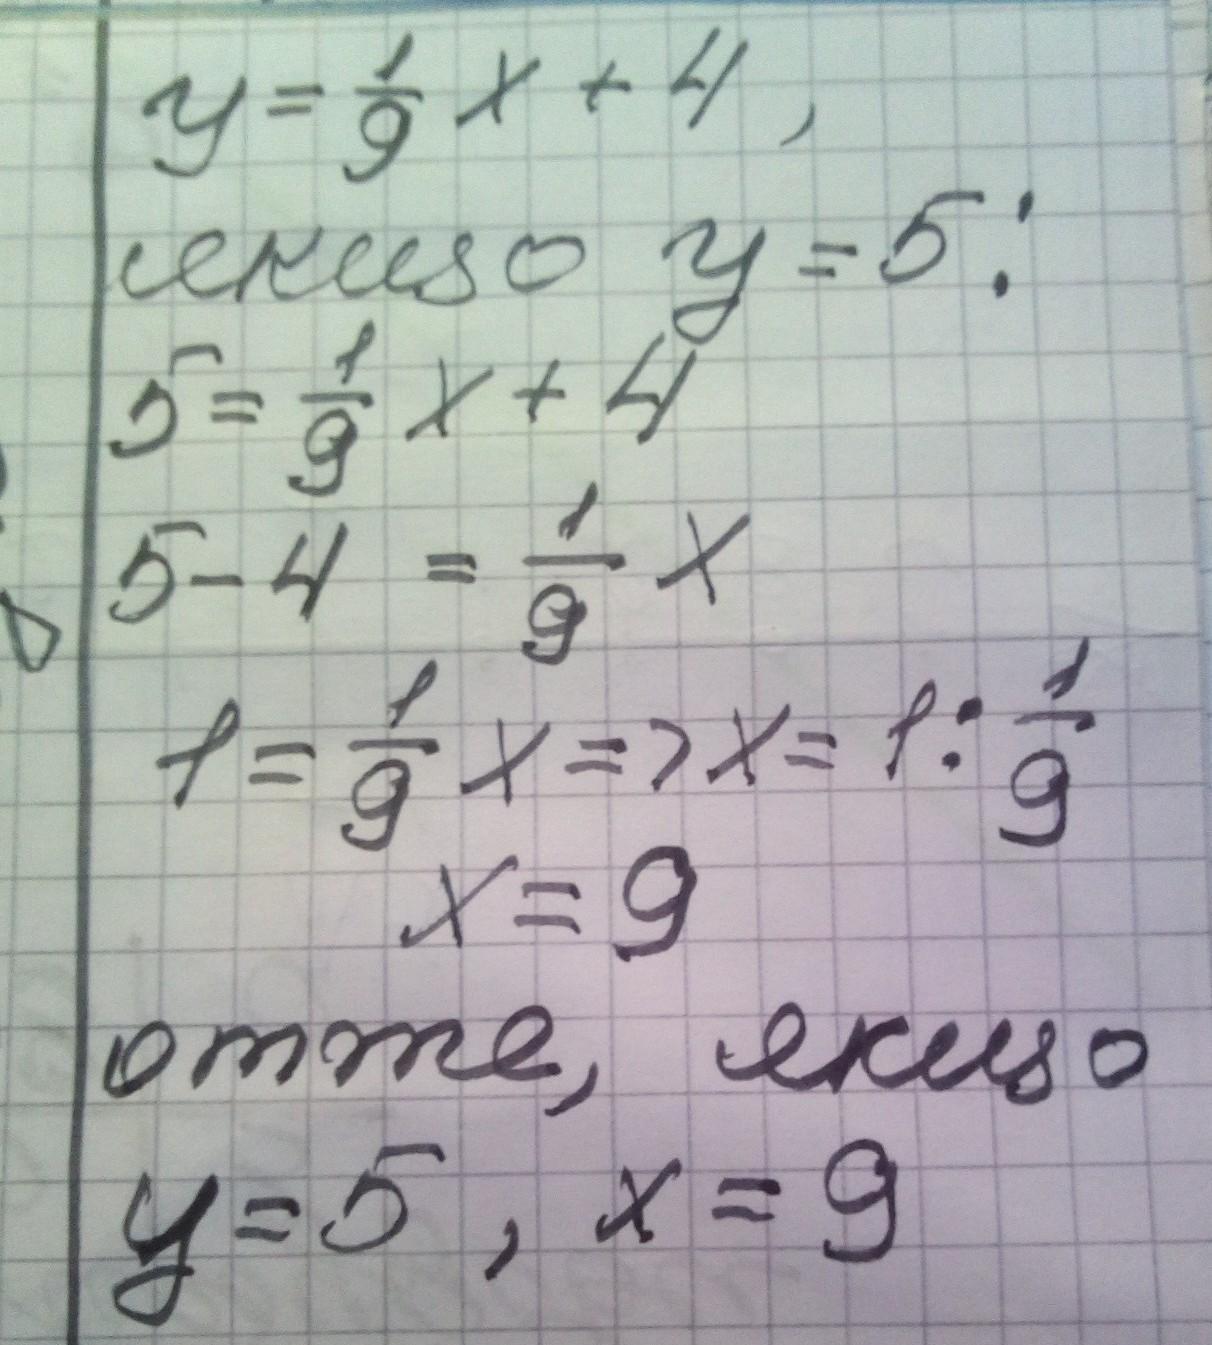 y = 1/9 x + 4,
якщо y = 5:
5 = 1/9 x + 4
5 - 4 = 1/9 x
1 = 1/9 x => x = 1 : 1/9
x = 9
отже, якщо
y = 5, x = 9